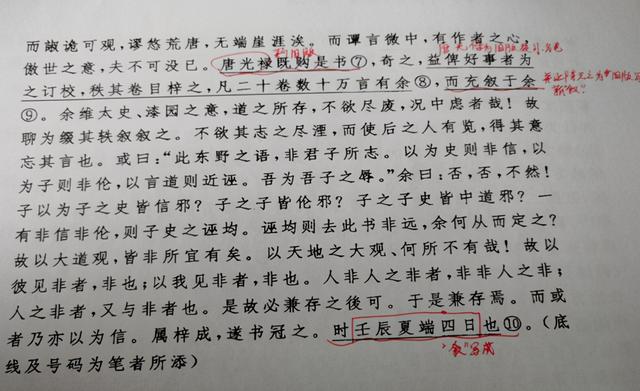 而敲诡可观，谬悠荒唐，无端崖涯涘。而谭言微中，有作者之心，
傲世之意，夫不可没已。唐光禄既购是书⑦，奇之，益俾好事者为
之订校，秩其卷目梓之，凡二十卷数十万言有余⑧，而充叙于余
⑨。余维太史、漆园之意，道之所存，不欲尽废，况中虑者哉！故
聊为缀其轶叙叙之。不欲其志之尽湮，而使后之人有览，得其意
忘其言也。或曰：“此东野之语，非君子所志。以为史则非信，以
为子则非伦，以言道则近诬。吾为吾子之辱。”余曰：否，否，不然！
子以为子之史皆信邪？子之子皆伦邪？子之子史皆中道邪？一
有非信非伦，则子史之诬均。诬均则去此书非远，余何从而定之？
故以大道观，皆非所宜有矣。以天地之大观、何所不有哉！故以
彼见非者，非也；以我见非者，非也。人非人之非者，非非人之非；
人之非者，又与非者也。是故必兼存之後可。于是兼存焉。而或
者乃亦以为信。属梓成，遂书冠之。时壬辰夏端四日也⑩。（底
线及号码为笔者所添）